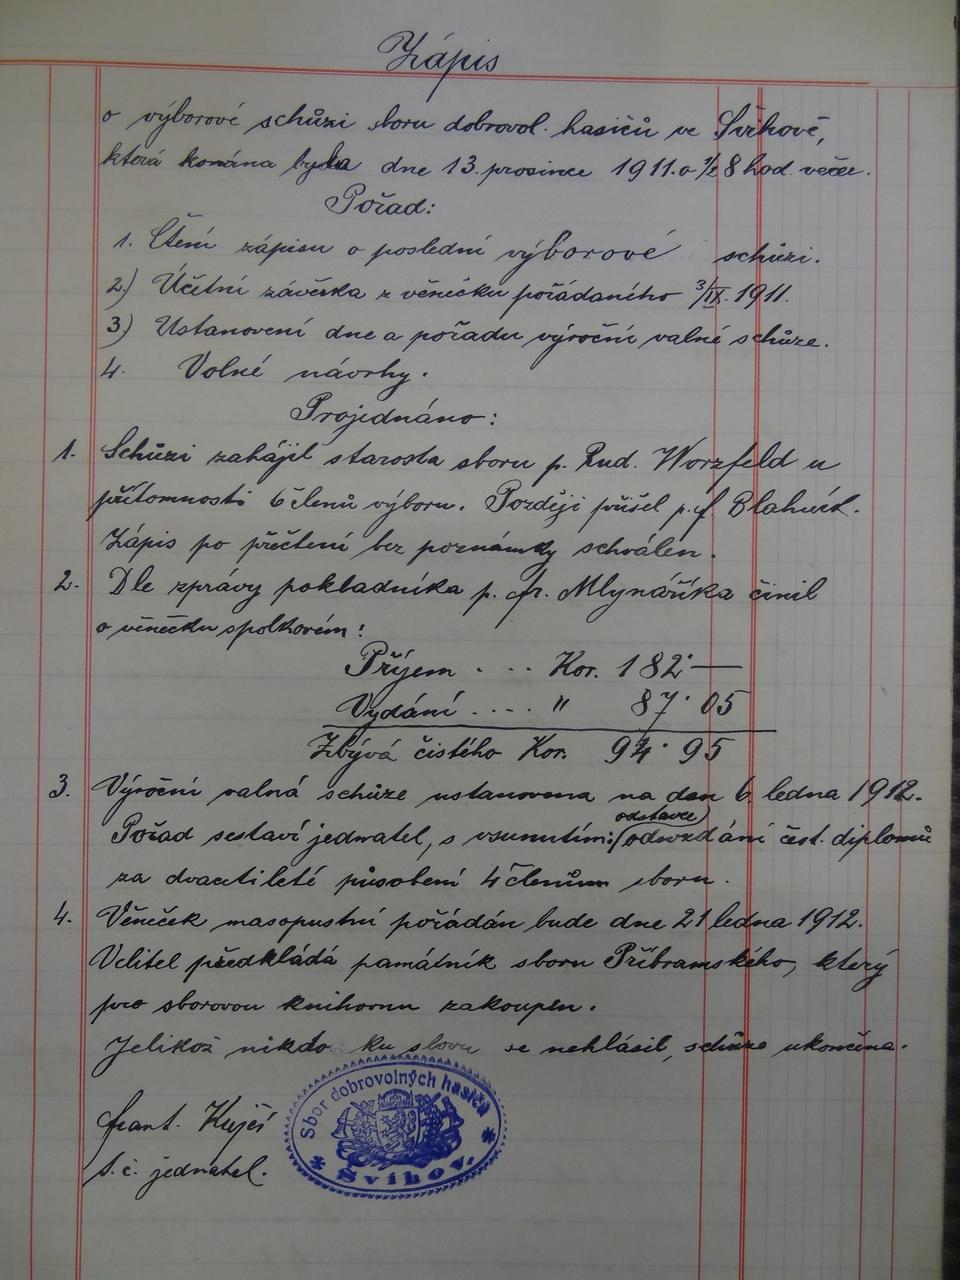 Zápis
o výborové schůzi sboru dobrovol. hasičů ve Švihově,
která konána byla dne 13. prosince 1911. o 1/2 8 hod. večer.
Pořad:
1. Čtení zápisu o poslední výborové schůzi.
2.) Účetní závěrka z věnečku pořádaného 3/IX. 1911.
3) Ustanovení dne a pořadu výroční valné schůze.
4. Volné návrhy.
Projednáno:
1. Schůzi zahájil starosta sboru p. Rud. Worzfeld u
přítomnosti 6 členů výboru. Později přišel p. J. Blahút.
Zápis po přečtení bez poznámky schválen.
2. Dle zprávy pokladníka p. Fr. Mlynáříka činil
o věnečku spolkovém:
Příjem . ... Kor. 182·—
Vydání .... " 87·05
Zbývá čistého Kor. 94·95
3. Výroční valná schůze ustanovena na den 6. ledna 1912.
Pořad sestaví jednatel, s vsunutím: (odstavce) odevzdání čest. diplomů
za dvacetileté působení 4 členům sboru.
4. Věneček masopustní pořádán bude dne 21 ledna 1912.
Velitel předkládá památník sboru Příbramského, který
pro sborovou knihovnu zakoupen.
Jelikož nikdo ku slovu se nehlásil, schůze ukončena.
Frant. Kujčí
t. č. jednatel.
Sbor dobrovolných hasičů
* Švihov. *